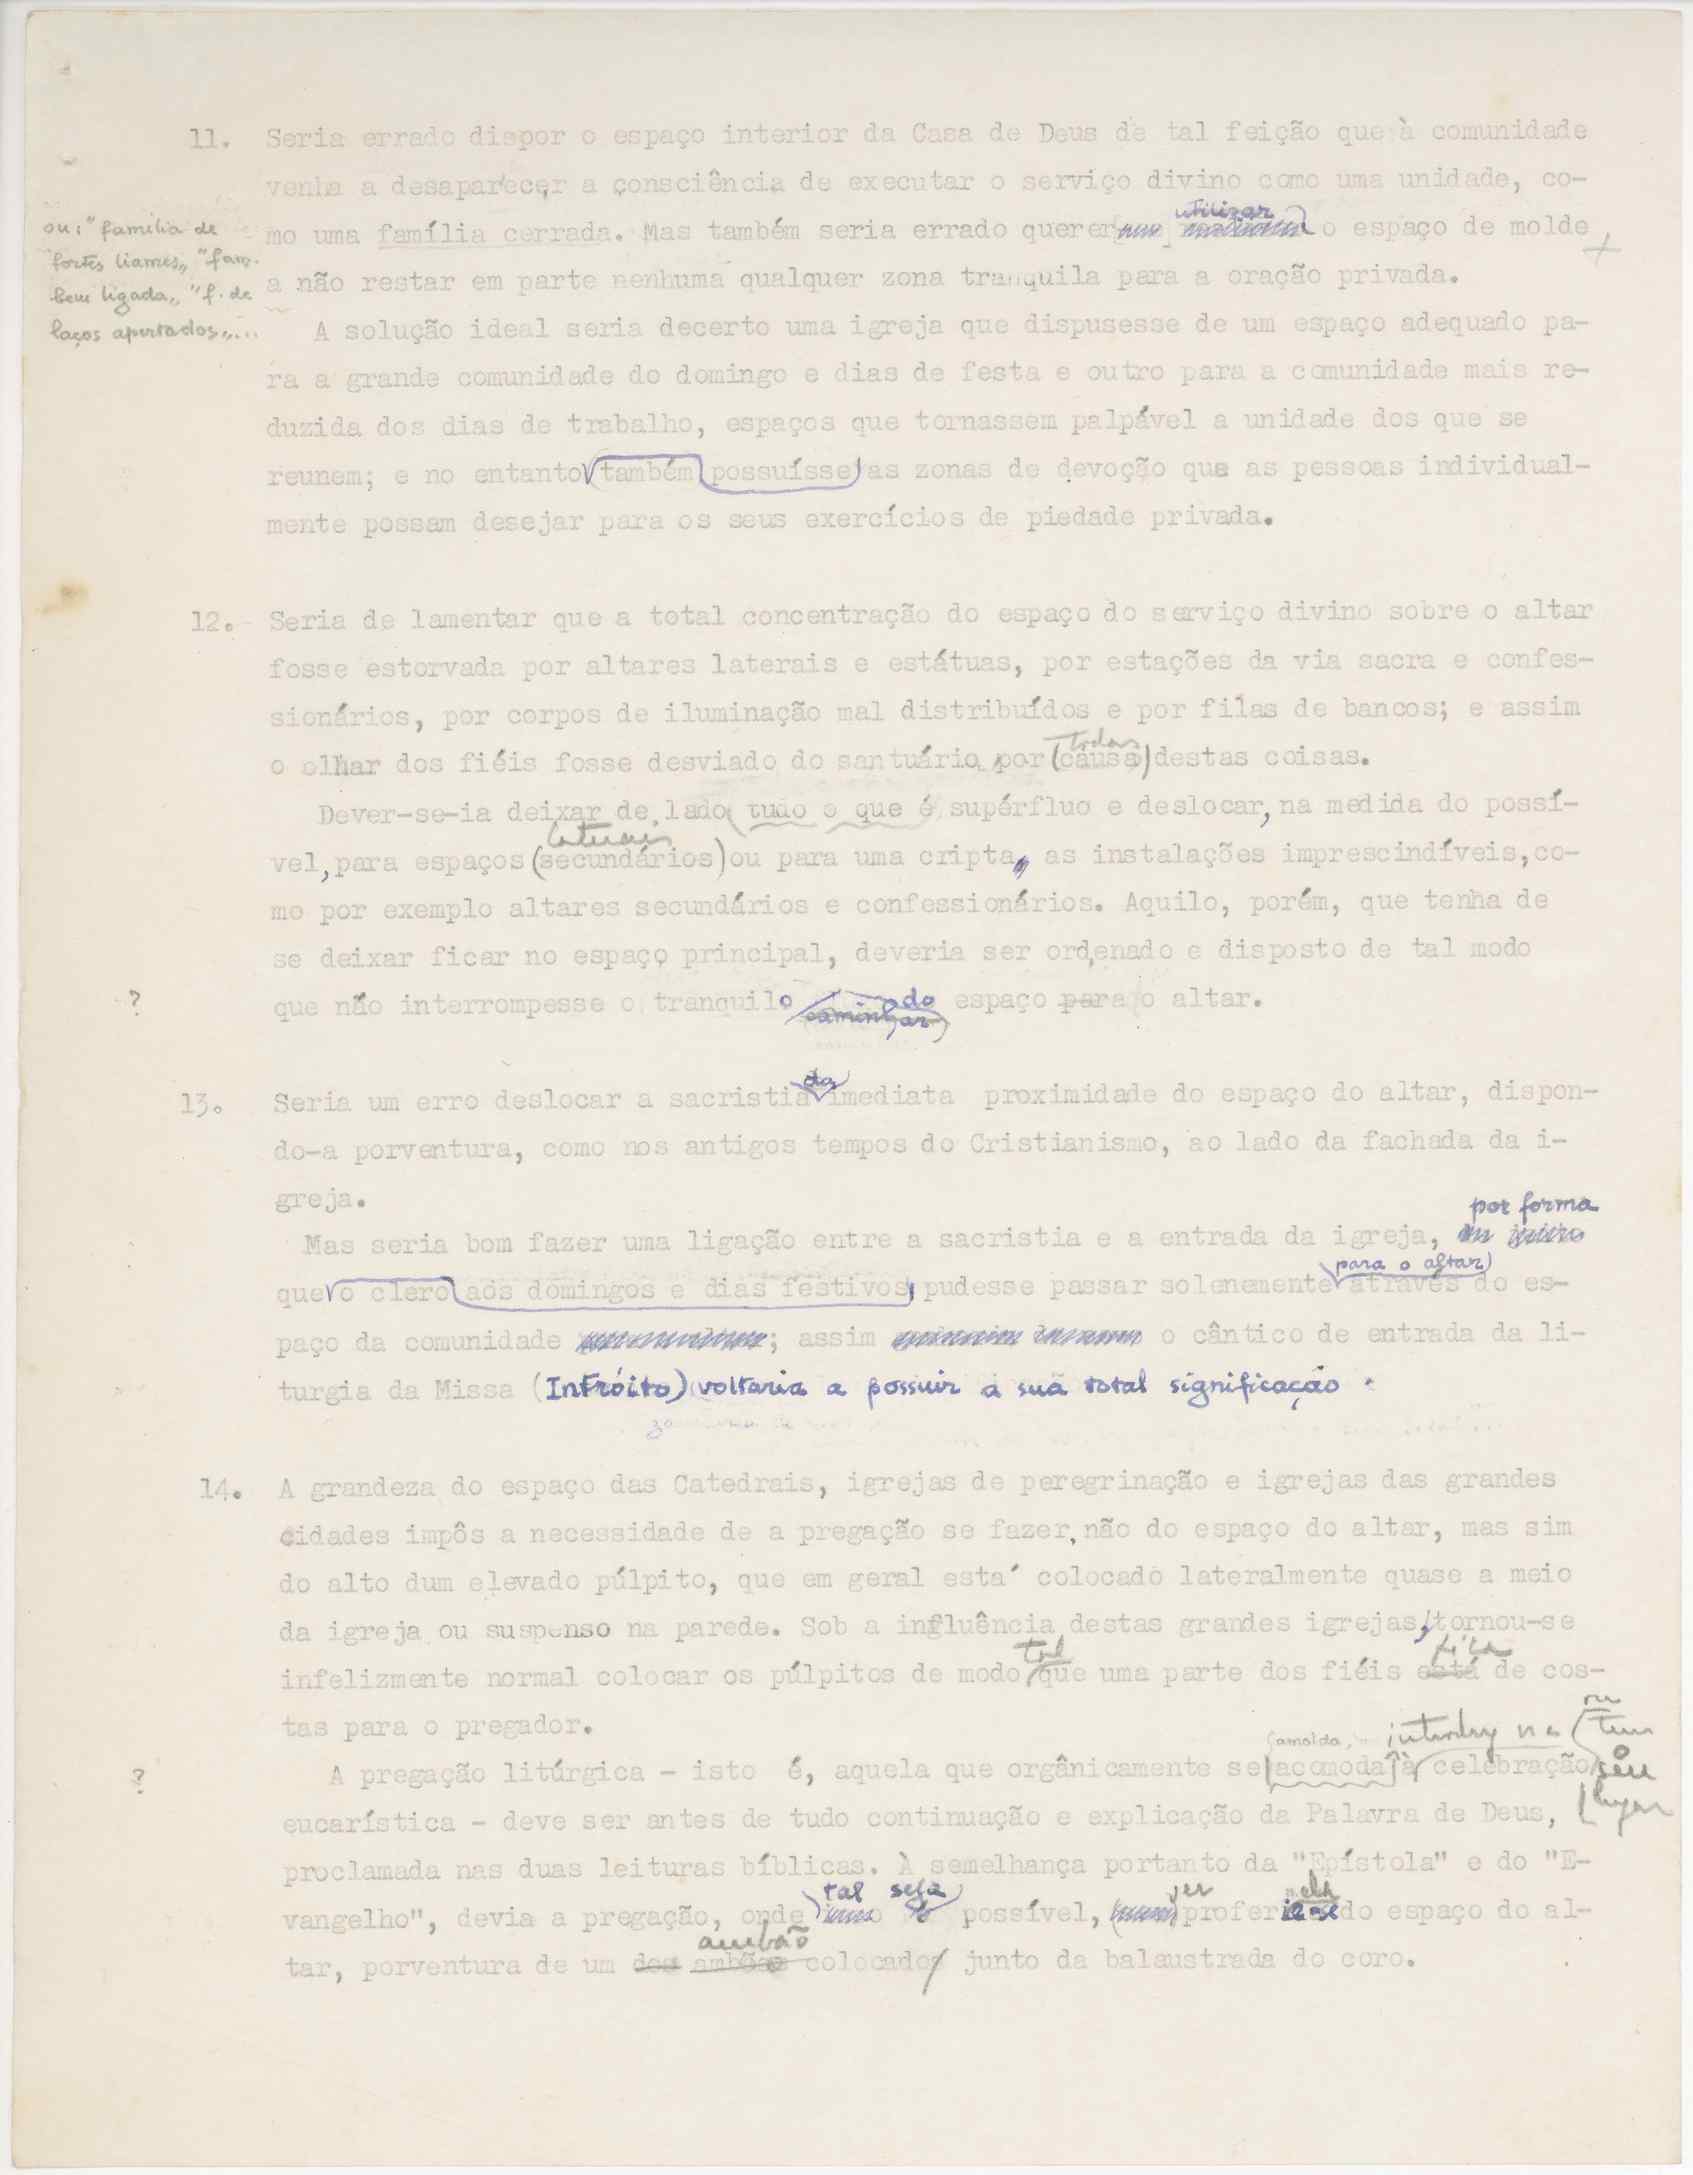 11. Seria errado dispor o espaço interior da Casa de Deus de tal feição que à comunidade
venha a desaparecer a consciência de executar o serviço divino como uma unidade, co-
utilizar
mo uma família cerrada. Mas também seria errado querer o espaço de molde
a não restar em parte nenhuma qualquer zona tranquila para a oração privada.
ou: "família de
fortes liames,, "fam.
bem ligada,, "f. de
laços apertados,,...
A solução ideal seria decerto uma igreja que dispusesse de um espaço adequado pa-
ra a grande comunidade do domingo e dias de festa e outro para a comunidade mais re-
duzida dos dias de trabalho, espaços que tornassem palpável a unidade dos que se
reunem; e no entanto também possuísse as zonas de devoção que as pessoas individual-
mente possam desejar para os seus exercícios de piedade privada.
12. Seria de lamentar que a total concentração do espaço do serviço divino sobre o altar
fosse estorvada por altares laterais e estátuas, por estações da via sacra e confes-
sionários, por corpos de iluminação mal distribuídos e por filas de bancos; e assim
todas
o olhar dos fiéis fosse desviado do santuário por (causa) destas coisas.
Dever-se-ia deixar de lado tudo o que é supérfluo e deslocar, na medida do possí-
laterais
vel, para espaços (secundários) ou para uma cripta, as instalações imprescindíveis, co-
mo por exemplo altares secundários e confessionários. Aquilo, porém, que tenha de
se deixar ficar no espaço principal, deveria ser ordenado e disposto de tal modo
? que não interrompesse o tranquilo do espaço para o altar.
caminhar
da
13. Seria um erro deslocar a sacristia imediata proximidade do espaço do altar, dispon-
do-a porventura, como nos antigos tempos do Cristianismo, ao lado da fachada da i-
greja.
por forma
Mas seria bom fazer uma ligação entre a sacristia e a entrada da igreja,
para o altar
que o clero aos domingos e dias festivos, pudesse passar solenemente através do es-
paço da comunidade ; assim o cântico de entrada da li-
turgia da Missa (Intróito) voltaria a possuir a sua total significação.
14. A grandeza do espaço das Catedrais, igrejas de peregrinação e igrejas das grandes
cidades impôs a necessidade de a pregação se fazer, não do espaço do altar, mas sim
do alto dum elevado púlpito, que em geral está colocado lateralmente quase a meio
da igreja ou suspenso na parede. Sob a influência destas grandes igrejas, tornou-se
tal fica
infelizmente normal colocar os púlpitos de modo que uma parte dos fiéis está de cos-
tas para o pregador.
amolda, na tem o seu lugar
? A pregação litúrgica - isto é, aquela que orgânicamente se acomoda à celebração
eucarística - deve ser antes de tudo continuação e explicação da Palavra de Deus,
proclamada nas duas leituras bíblicas. À semelhança portanto da "Epístola" e do "E-
tal seja ser ela
vangelho", devia a pregação, onde possível, proferir-se do espaço do al-
ambão
tar, porventura de um dos ambões colocados junto da balaustrada do coro.